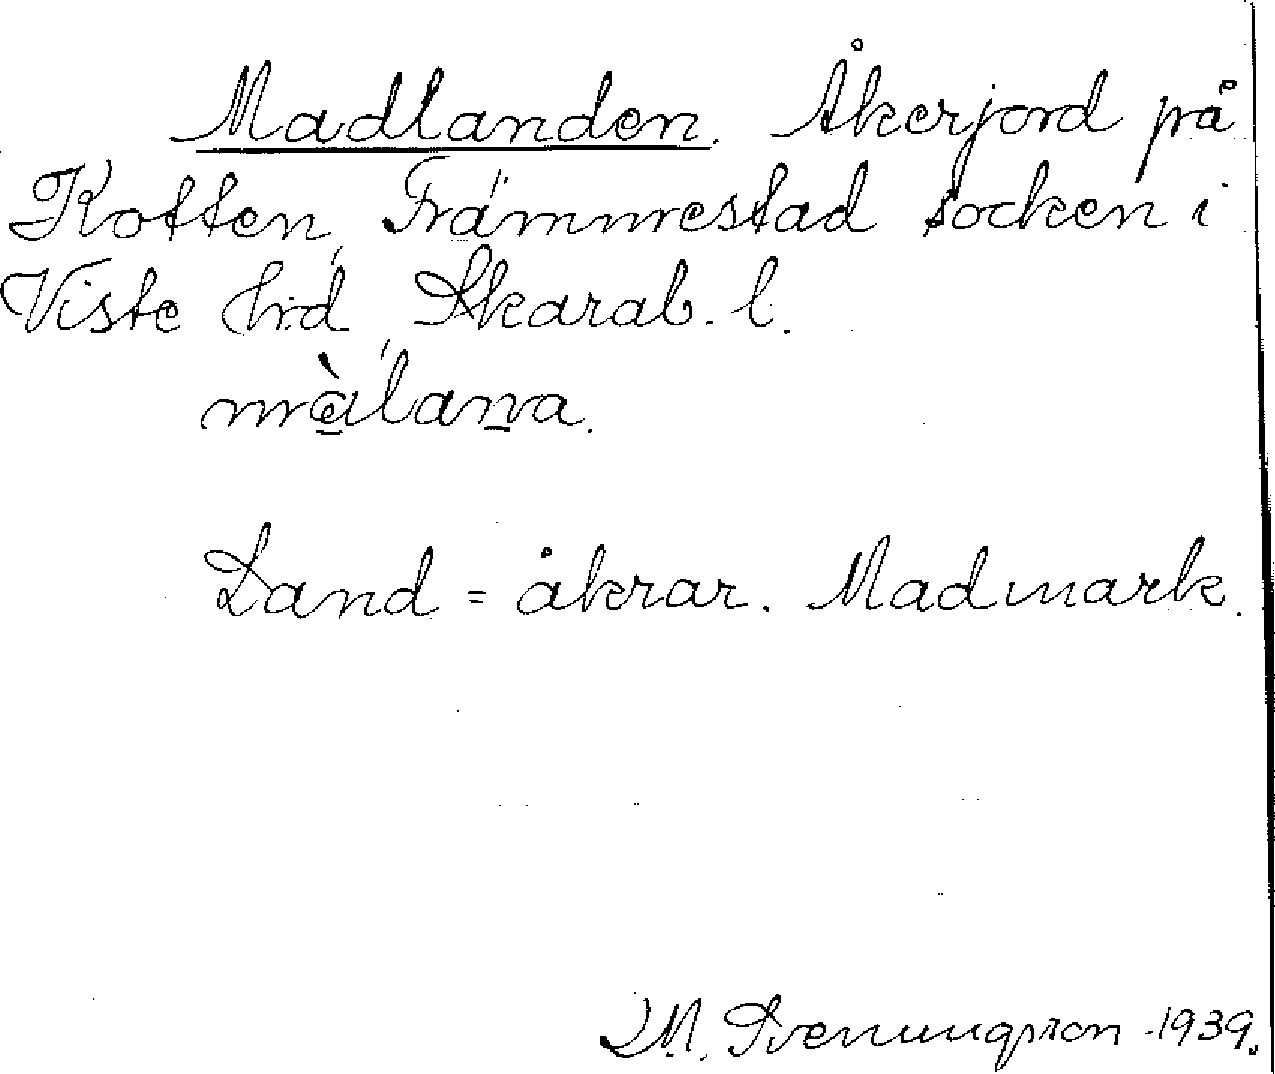 Madlanden. Åkerjord på
Kotten, Främmestad socken i
Viste hd, Skarab. l.
màlana.
Land = åkrar. Madmark.
M. Svenungsson 1939.